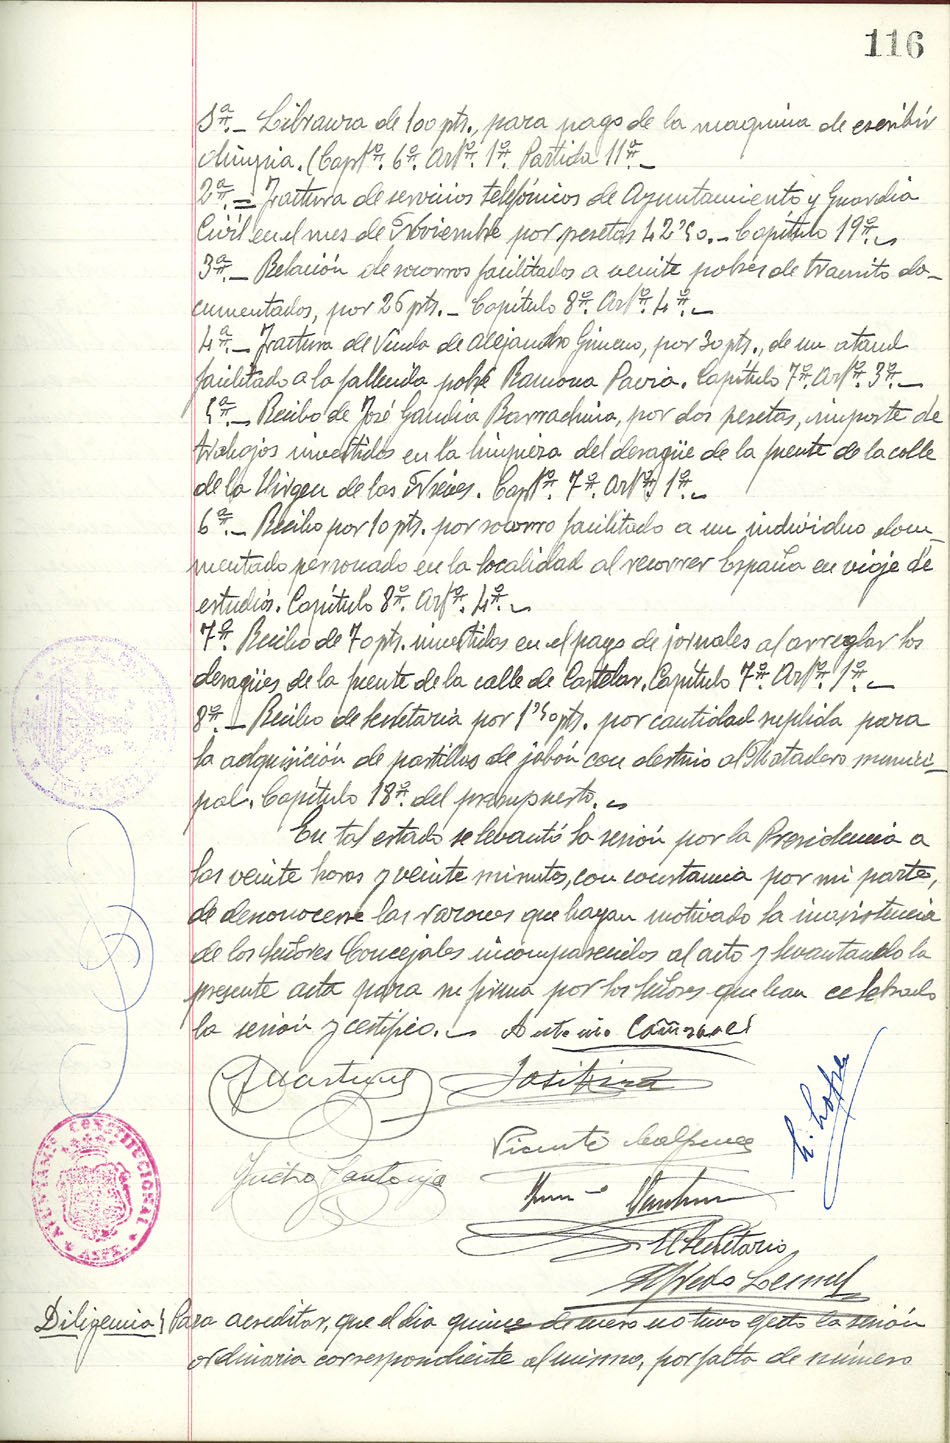 116
1ª.- Libranza de 100 pts., para pago de la maquina de escribir
Olimpia. (Captº. 6º. Artº. 1º. Partida 11ª.-
2ª.= Factura de servicios telefónicos de Ayuntamiento y Guardia
Civil en el mes de Noviembre por pesetas 42'50.- Capítulo 19º.-
3ª.- Relación de socorros facilitados a veinte pobres de transito do-
cumentados, por 26 pts.- Capítulo 8º. Artº. 4º.-
4ª.- Factura de Viuda de Alejandro Gimeno, por 30 pts., de un ataud
facilitado a la fallecida pobre Ramona Pavia. Capítulo 7º. Artº. 3º.-
5ª.- Recibo de José Gandia Barrachina, por dos pesetas, importe de
trabajos invertidos en la limpieza del desagüe de la fuente de la calle
de la Virgen de las Nieves. Captº. 7º. Artº. 1º.-
6ª.- Recibo por 10 pts. por socorro facilitado a un individuo docu-
mentado personado en la localidad al recorrer España en viaje de
estudios. Capítulo 8º. Artº. 4º.-
7ª. Recibo de 70 pts. invertidos en el pago de jornales al arreglar los
desagües de la fuente de la calle de Castelar. Capítulo 7º. Artº. 1º.-
8ª.- Recibo de secretaria por 1'50 pts. por cantidad suplida para
la adquisición de pastillas de jabón con destino al Matadero munici-
pal. Capítulo 18º. del presupuesto.-
En tal estado se levantó la sesión por la Presidencia a
las veinte horas y veinte minutos, con constancia por mi parte,
de desconocerse las razones que hayan motivado la inasistencia
de los Señores Concejales incomparecidos al acto y levantando la
presente acta para su firma por los Señores que han celebrado
la sesión y certifico.- Antonio Cañizares
Vicente
Santonja
L. López
El Secretario
AYUNTAMIENTO CONSTITUCIONAL
Diligencia} Para acreditar, que el dia quince de enero no tuvo efecto la sesión
ordinaria correspondiente al mismo, por falta de número